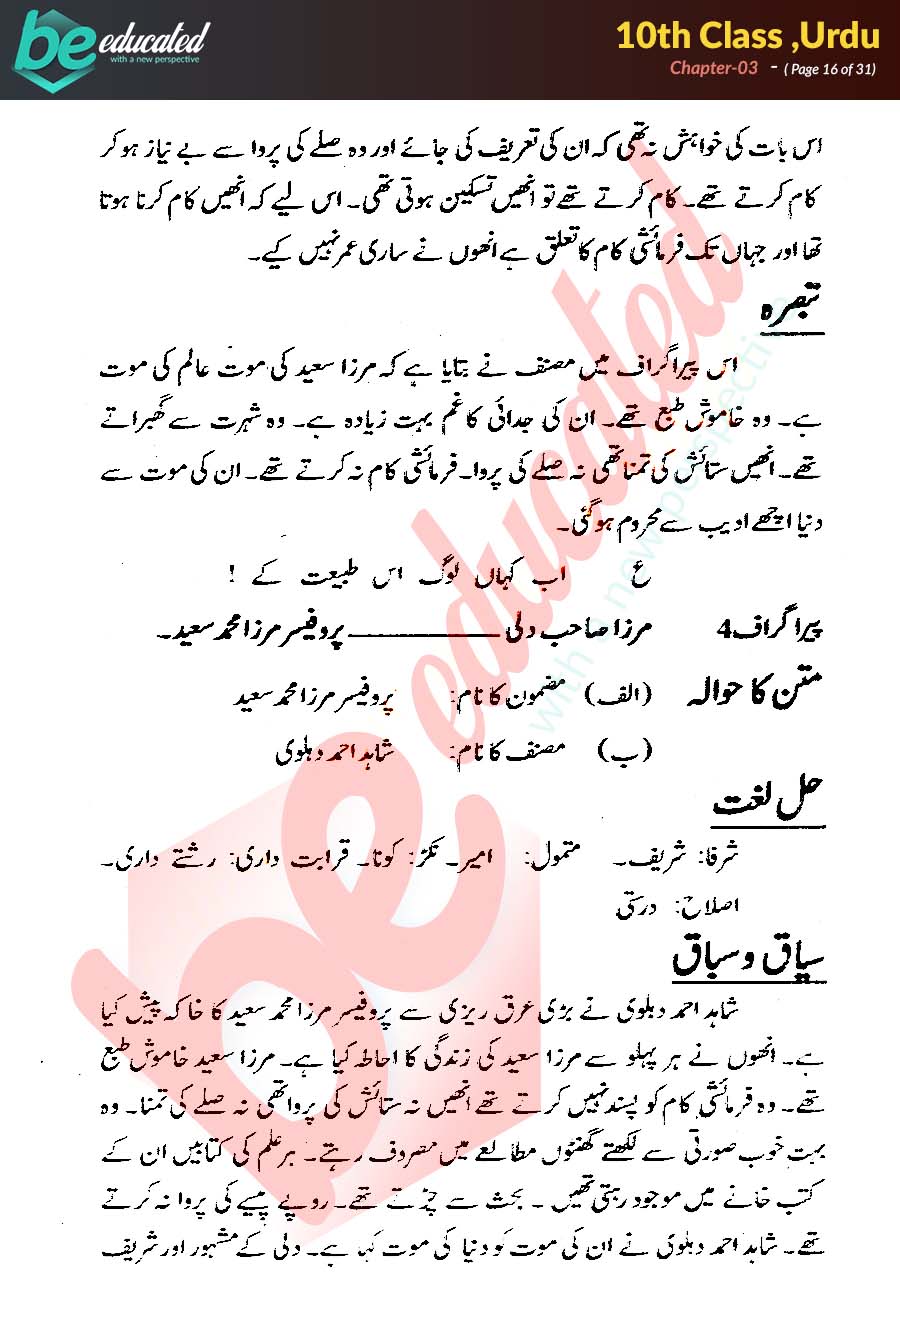 be educated
with a new perspective
10th Class ,Urdu
Chapter-03 - ( Page 16 of 31)
اس بات کی خواہش نہ تھی کہ ان کی تعریف کی جائے اور وہ صلے کی پروا سے بے نیاز ہو کر
کام کرتے تھے۔ کام کرتے تھے تو انھیں تسکین ہوتی تھی۔ اس لیے کہ انھیں کام کرنا ہوتا
تھا اور جہاں تک فرمائشی کام کا تعلق ہے انھوں نے ساری عمر نہیں کیے۔
تبصرہ
اس پیراگراف میں مصنف نے بتایا ہے کہ مرزا سعید کی موت عالم کی موت
ہے۔ وہ خاموش طبع تھے۔ ان کی جدائی کا غم بہت زیادہ ہے۔ وہ شہرت سے گھبراتے
تھے۔ انھیں ستائش کی تمنا تھی نہ صلے کی پروا۔ فرمائشی کام نہ کرتے تھے۔ ان کی موت سے
دنیا اچھے ادیب سے محروم ہوگئی۔
ع اب کہاں لوگ اس طبیعت کے !
پیراگراف4 مرزا صاحب دلی ــــــــــــــــ پروفیسر مرزا محمد سعید۔
متن کا حوالہ (الف) مضمون کا نام: پروفیسر مرزا محمد سعید
(ب) مصنف کا نام: شاہد احمد دہلوی
حل لغت
شرفا: شریف۔ متمول: امیر۔ نکڑ: کونا۔ قرابت داری: رشتے داری۔
اصلاح: درستی
سیاق و سباق
شاہد احمد دہلوی نے بڑی عرق ریزی سے پروفیسر مرزا محمد سعید کا خاکہ پیش کیا
ہے۔ انھوں نے ہر پہلو سے مرزا سعید کی زندگی کا احاطہ کیا ہے۔ مرزا سعید خاموش طبع
تھے۔ وہ فرمائشی کام کو پسند نہیں کرتے تھے انھیں نہ ستائش کی پروا تھی نہ صلے کی تمنا۔ وہ
بہت خوب صورتی سے لکھتے گھنٹوں مطالعے میں مصروف رہتے۔ ہر علم کی کتابیں ان کے
کتب خانے میں موجود رہتی تھیں ۔ بحث سے چڑتے تھے۔ روپے پیسے کی پروا نہ کرتے
تھے۔ شاہد احمد دہلوی نے ان کی موت کو دنیا کی موت کہا ہے۔ دلی کے مشہور اور شریف
be educated
with a new perspective